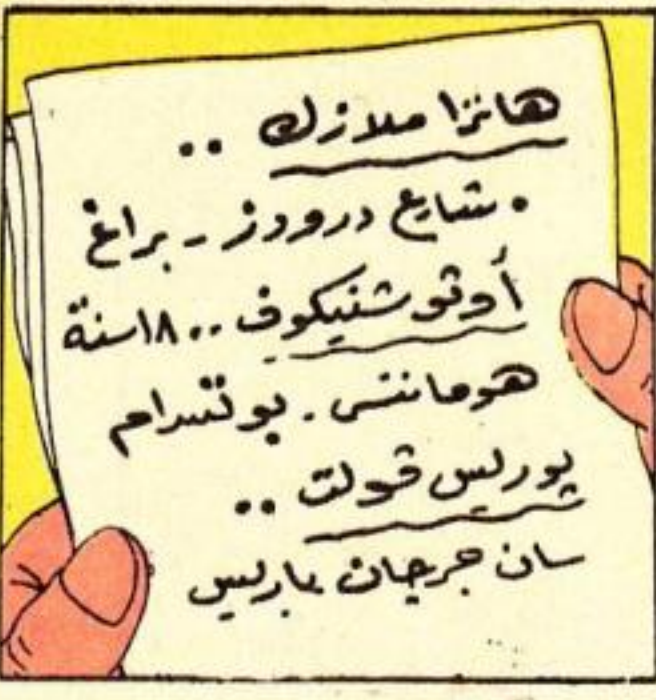 هانزا ملازك ..
. شارع درودز - براغ
أوتو شنيكوف .. ١٨ سنة
هوماننس . بوتسدام
پوريس قولت ..
سان جرجان بباريس